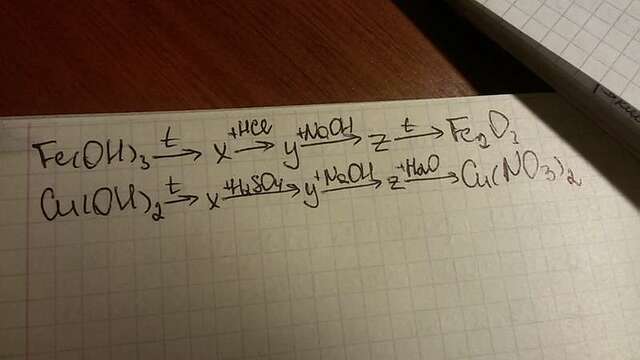 Fe(OH)₃ —t→ x —+HCl→ y —+NaOH→ z —t→ Fe₂O₃
Cu(OH)₂ —t→ x —+H₂SO₄→ y —+NaOH→ z —+H₂O→ Cu(NO₃)₂